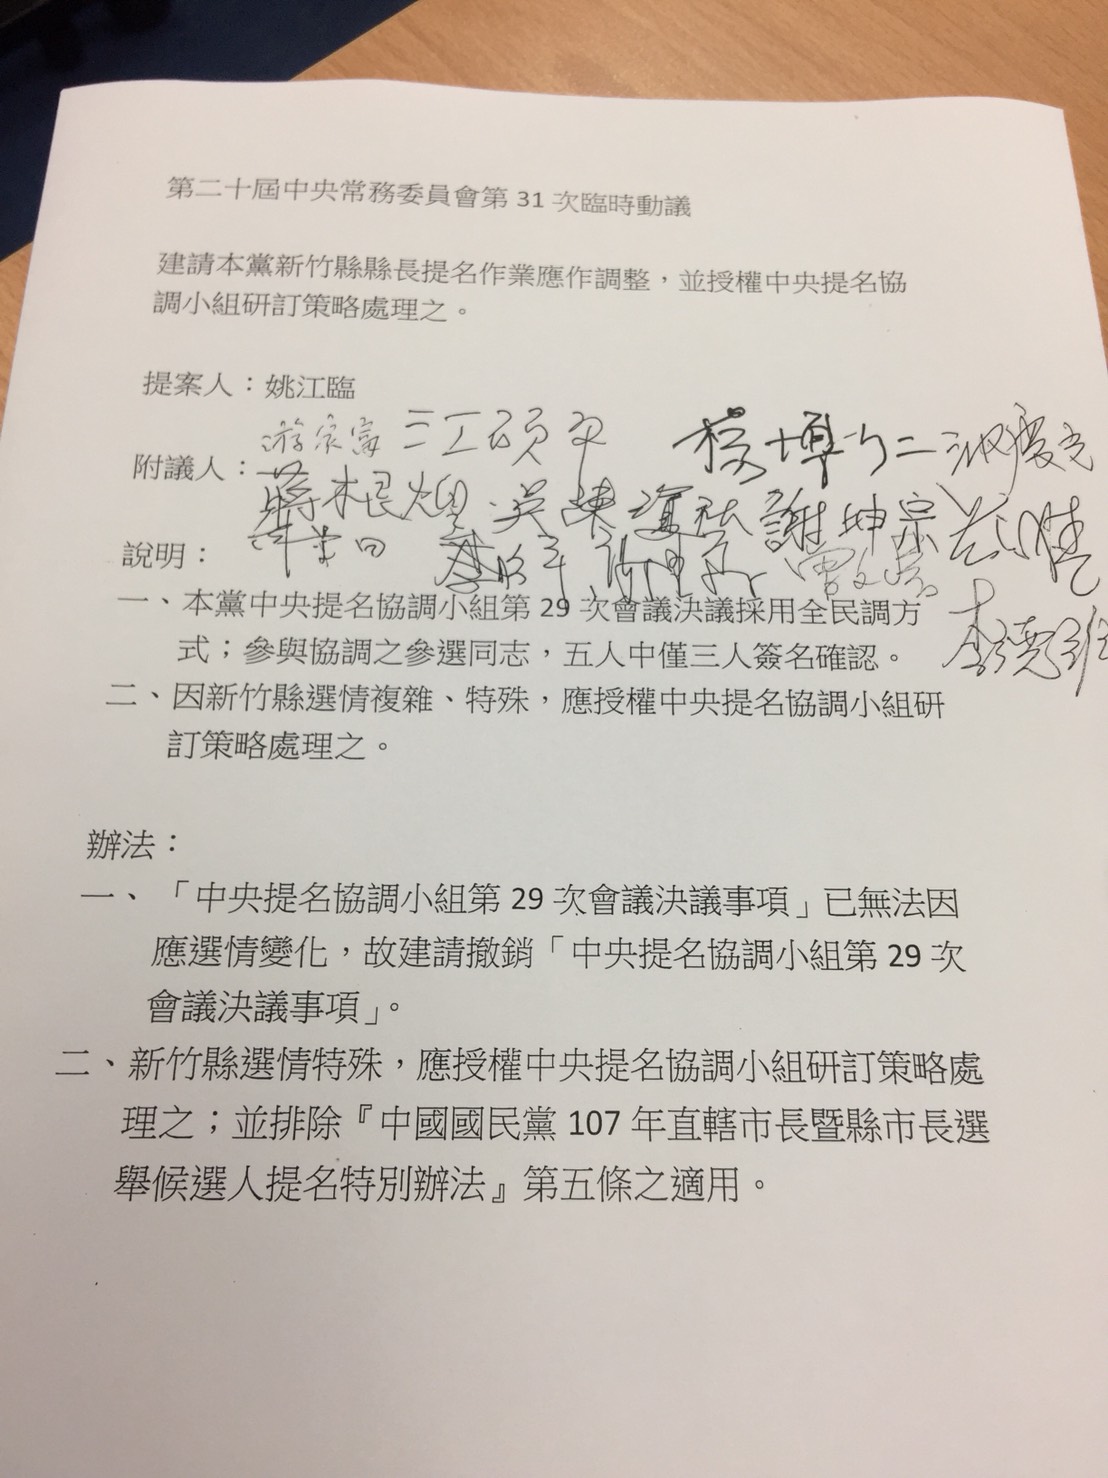 第二十屆中央常務委員會第 31 次臨時動議
建請本黨新竹縣縣長提名作業應作調整，並授權中央提名協
調小組研訂策略處理之。
提案人：姚江臨
游宗富 江碩平
附議人：
蔣根煌 謝坤宗
說明：
李德維
一、本黨中央提名協調小組第 29 次會議決議採用全民調方
式；參與協調之參選同志，五人中僅三人簽名確認。
二、因新竹縣選情複雜、特殊，應授權中央提名協調小組研
訂策略處理之。
辦法：
一、「中央提名協調小組第 29 次會議決議事項」已無法因
應選情變化，故建請撤銷「中央提名協調小組第 29 次
會議決議事項」。
二、新竹縣選情特殊，應授權中央提名協調小組研訂策略處
理之；並排除『中國國民黨 107 年直轄市長暨縣市長選
舉候選人提名特別辦法』第五條之適用。